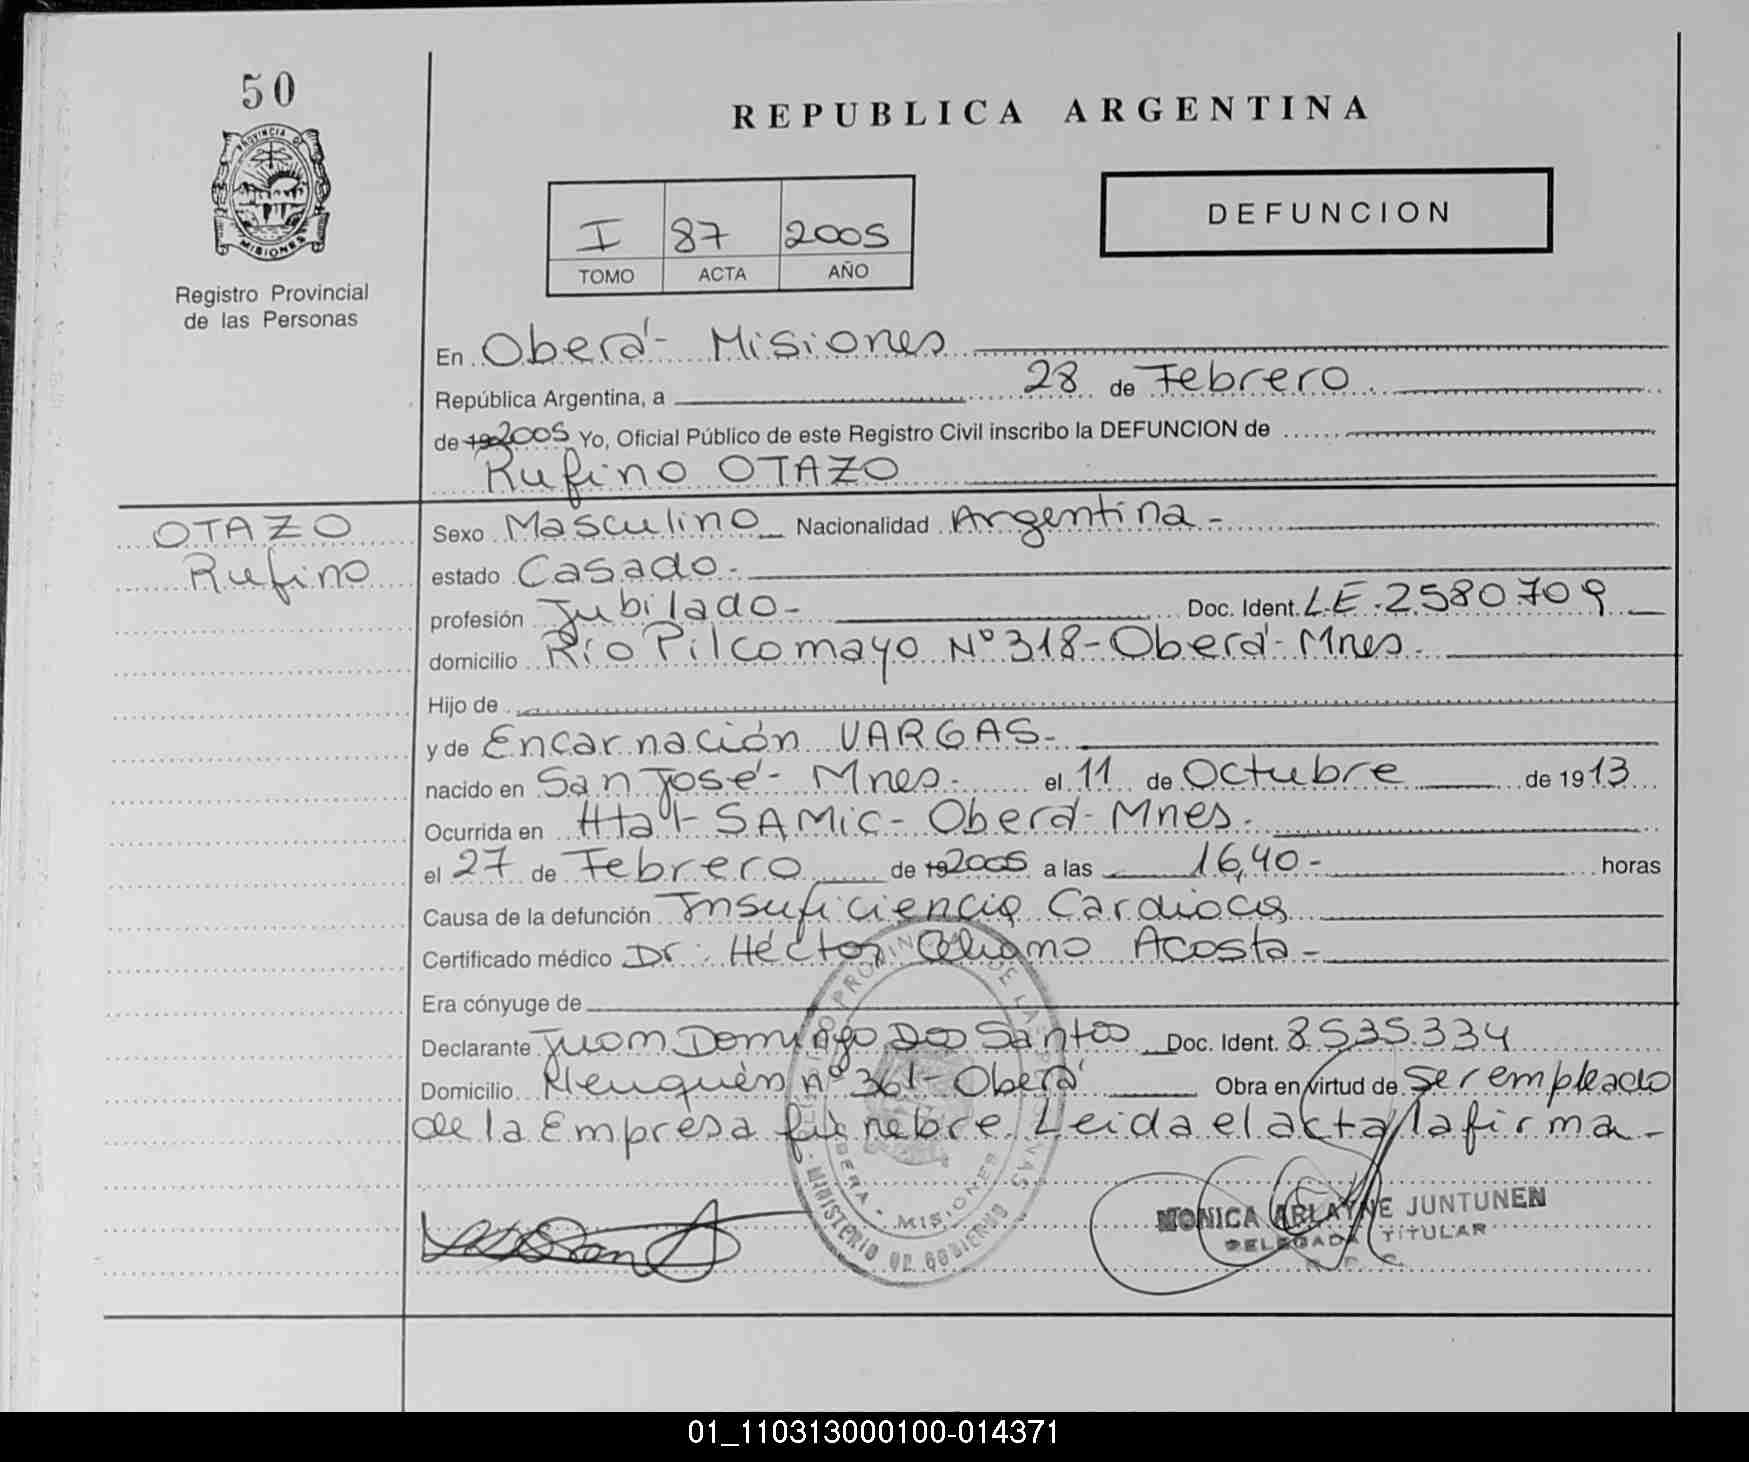 50
REPUBLICA ARGENTINA
PROVINCIA DE
MISIONES
DEFUNCION
I 87 2005
TOMO ACTA AÑO
Registro Provincial
de las Personas
En Oberá - Misiones
República Argentina, a 28 de Febrero
de 19 2005 Yo, Oficial Público de este Registro Civil inscribo la DEFUNCION de
Rufino OTAZO
OTAZO
Rufino
Sexo Masculino Nacionalidad Argentina -
estado Casado -
profesión Jubilado - Doc. Ident. L.E. 2580709
domicilio Río Pilcomayo Nº 318 - Oberá - Mnes.
Hijo de
y de Encarnación VARGAS -
nacido en San José - Mnes - el 11 de Octubre de 1913
Ocurrida en Htal SAMIC - Oberá - Mnes.
el 27 de Febrero de 19 2005 a las 16,40 - horas
Causa de la defunción Insuficiencia Cardiaca
Certificado médico Dr. Héctor Acosta -
Era cónyuge de
Declarante Juan Domingo Dos Santos Doc. Ident. 8535.334
Domicilio Neuquén nº 361 - Oberá Obra en virtud de ser empleado
de la Empresa fúnebre. Leida el acta la firma -
OBERA - MISIONES
MINISTERIO DE GOBIERNO
MONICA ARLAYNE JUNTUNEN
DELEGADA TITULAR
01_110313000100-014371